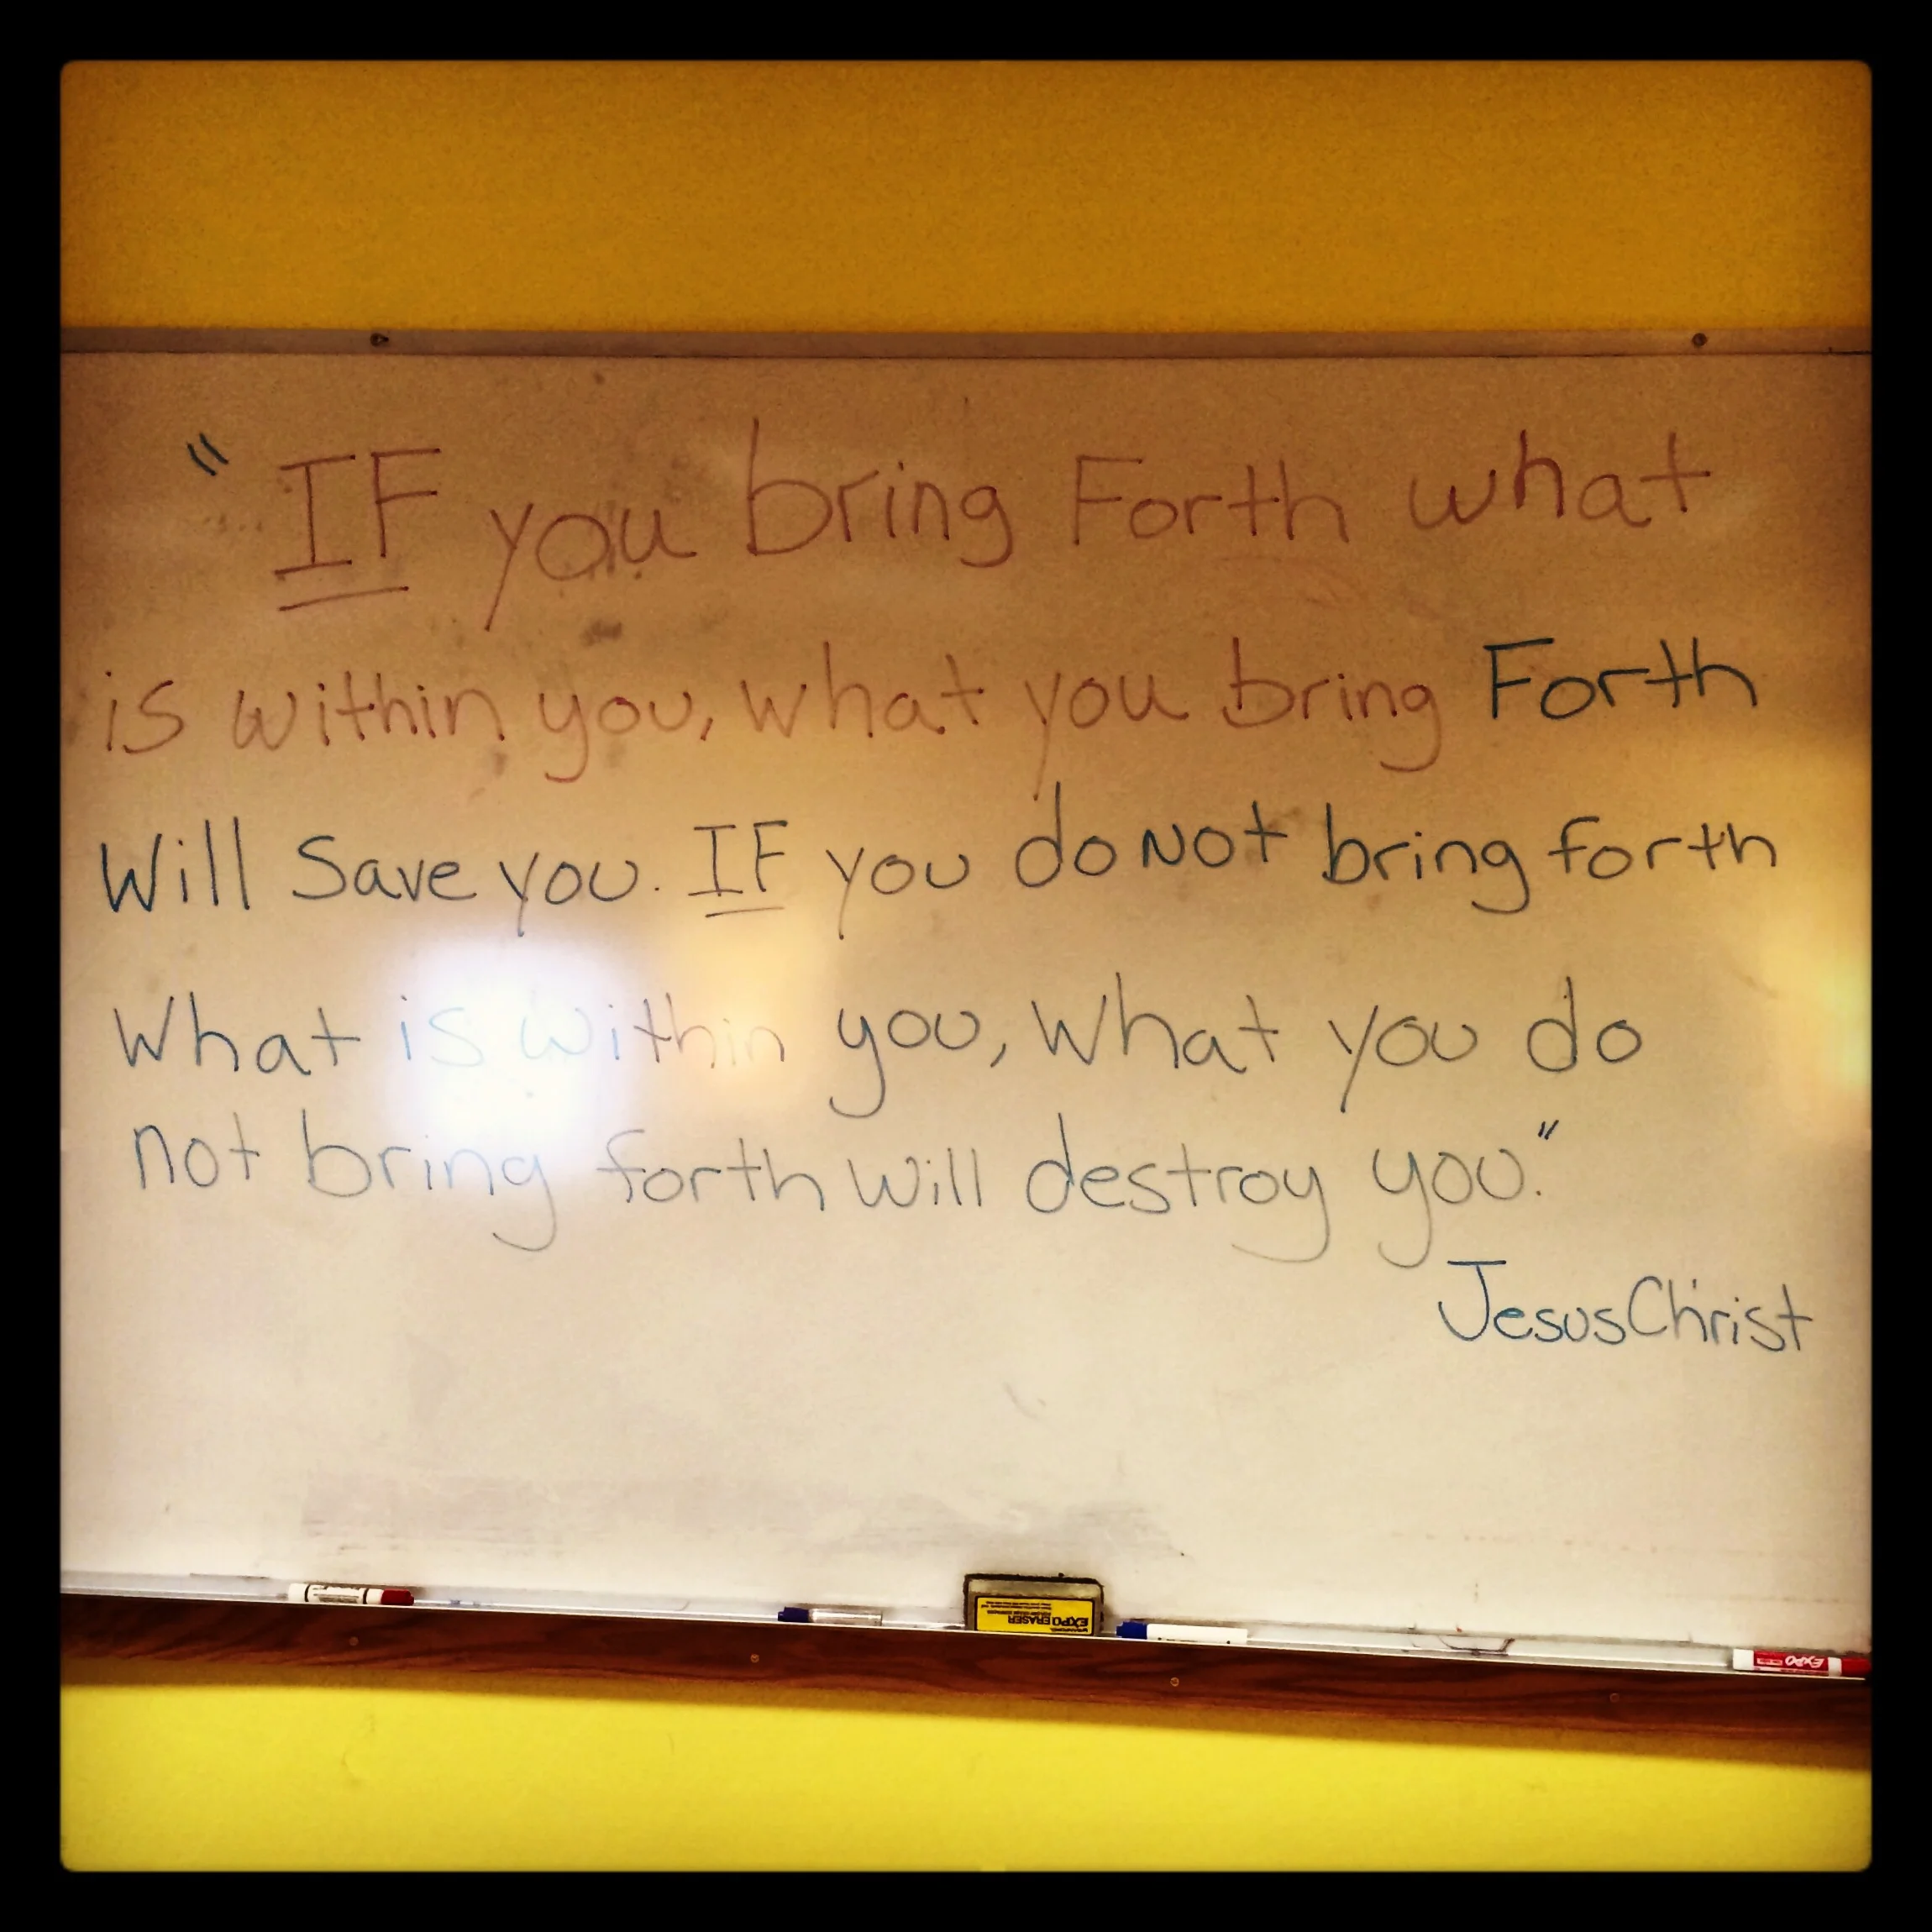 "IF you bring Forth what
is within you, what you bring Forth
Will Save you. IF you do NOT bring forth
What is within you, What you do
not bring forth will destroy you."
Jesus Christ
EXPO ERASER
EXPO